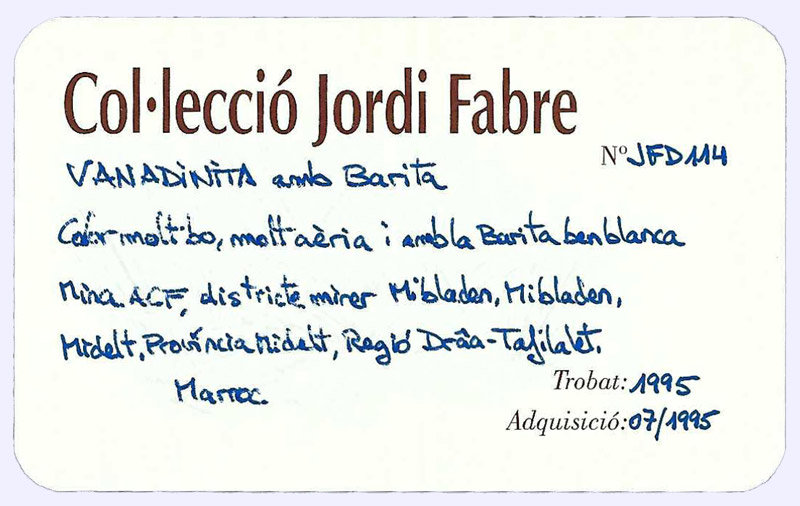 Col·lecció Jordi Fabre
Nº JFD114
VANADiNiTA amb Barita
Color molt bo, molt aèria i amb la Barita ben blanca
Mina ACF, districte miner Mibladen, Mibladen,
Midelt, Província Midelt, Regió Drâa-Tafilalet.
Marroc.
Trobat: 1995
Adquisició: 07/1995